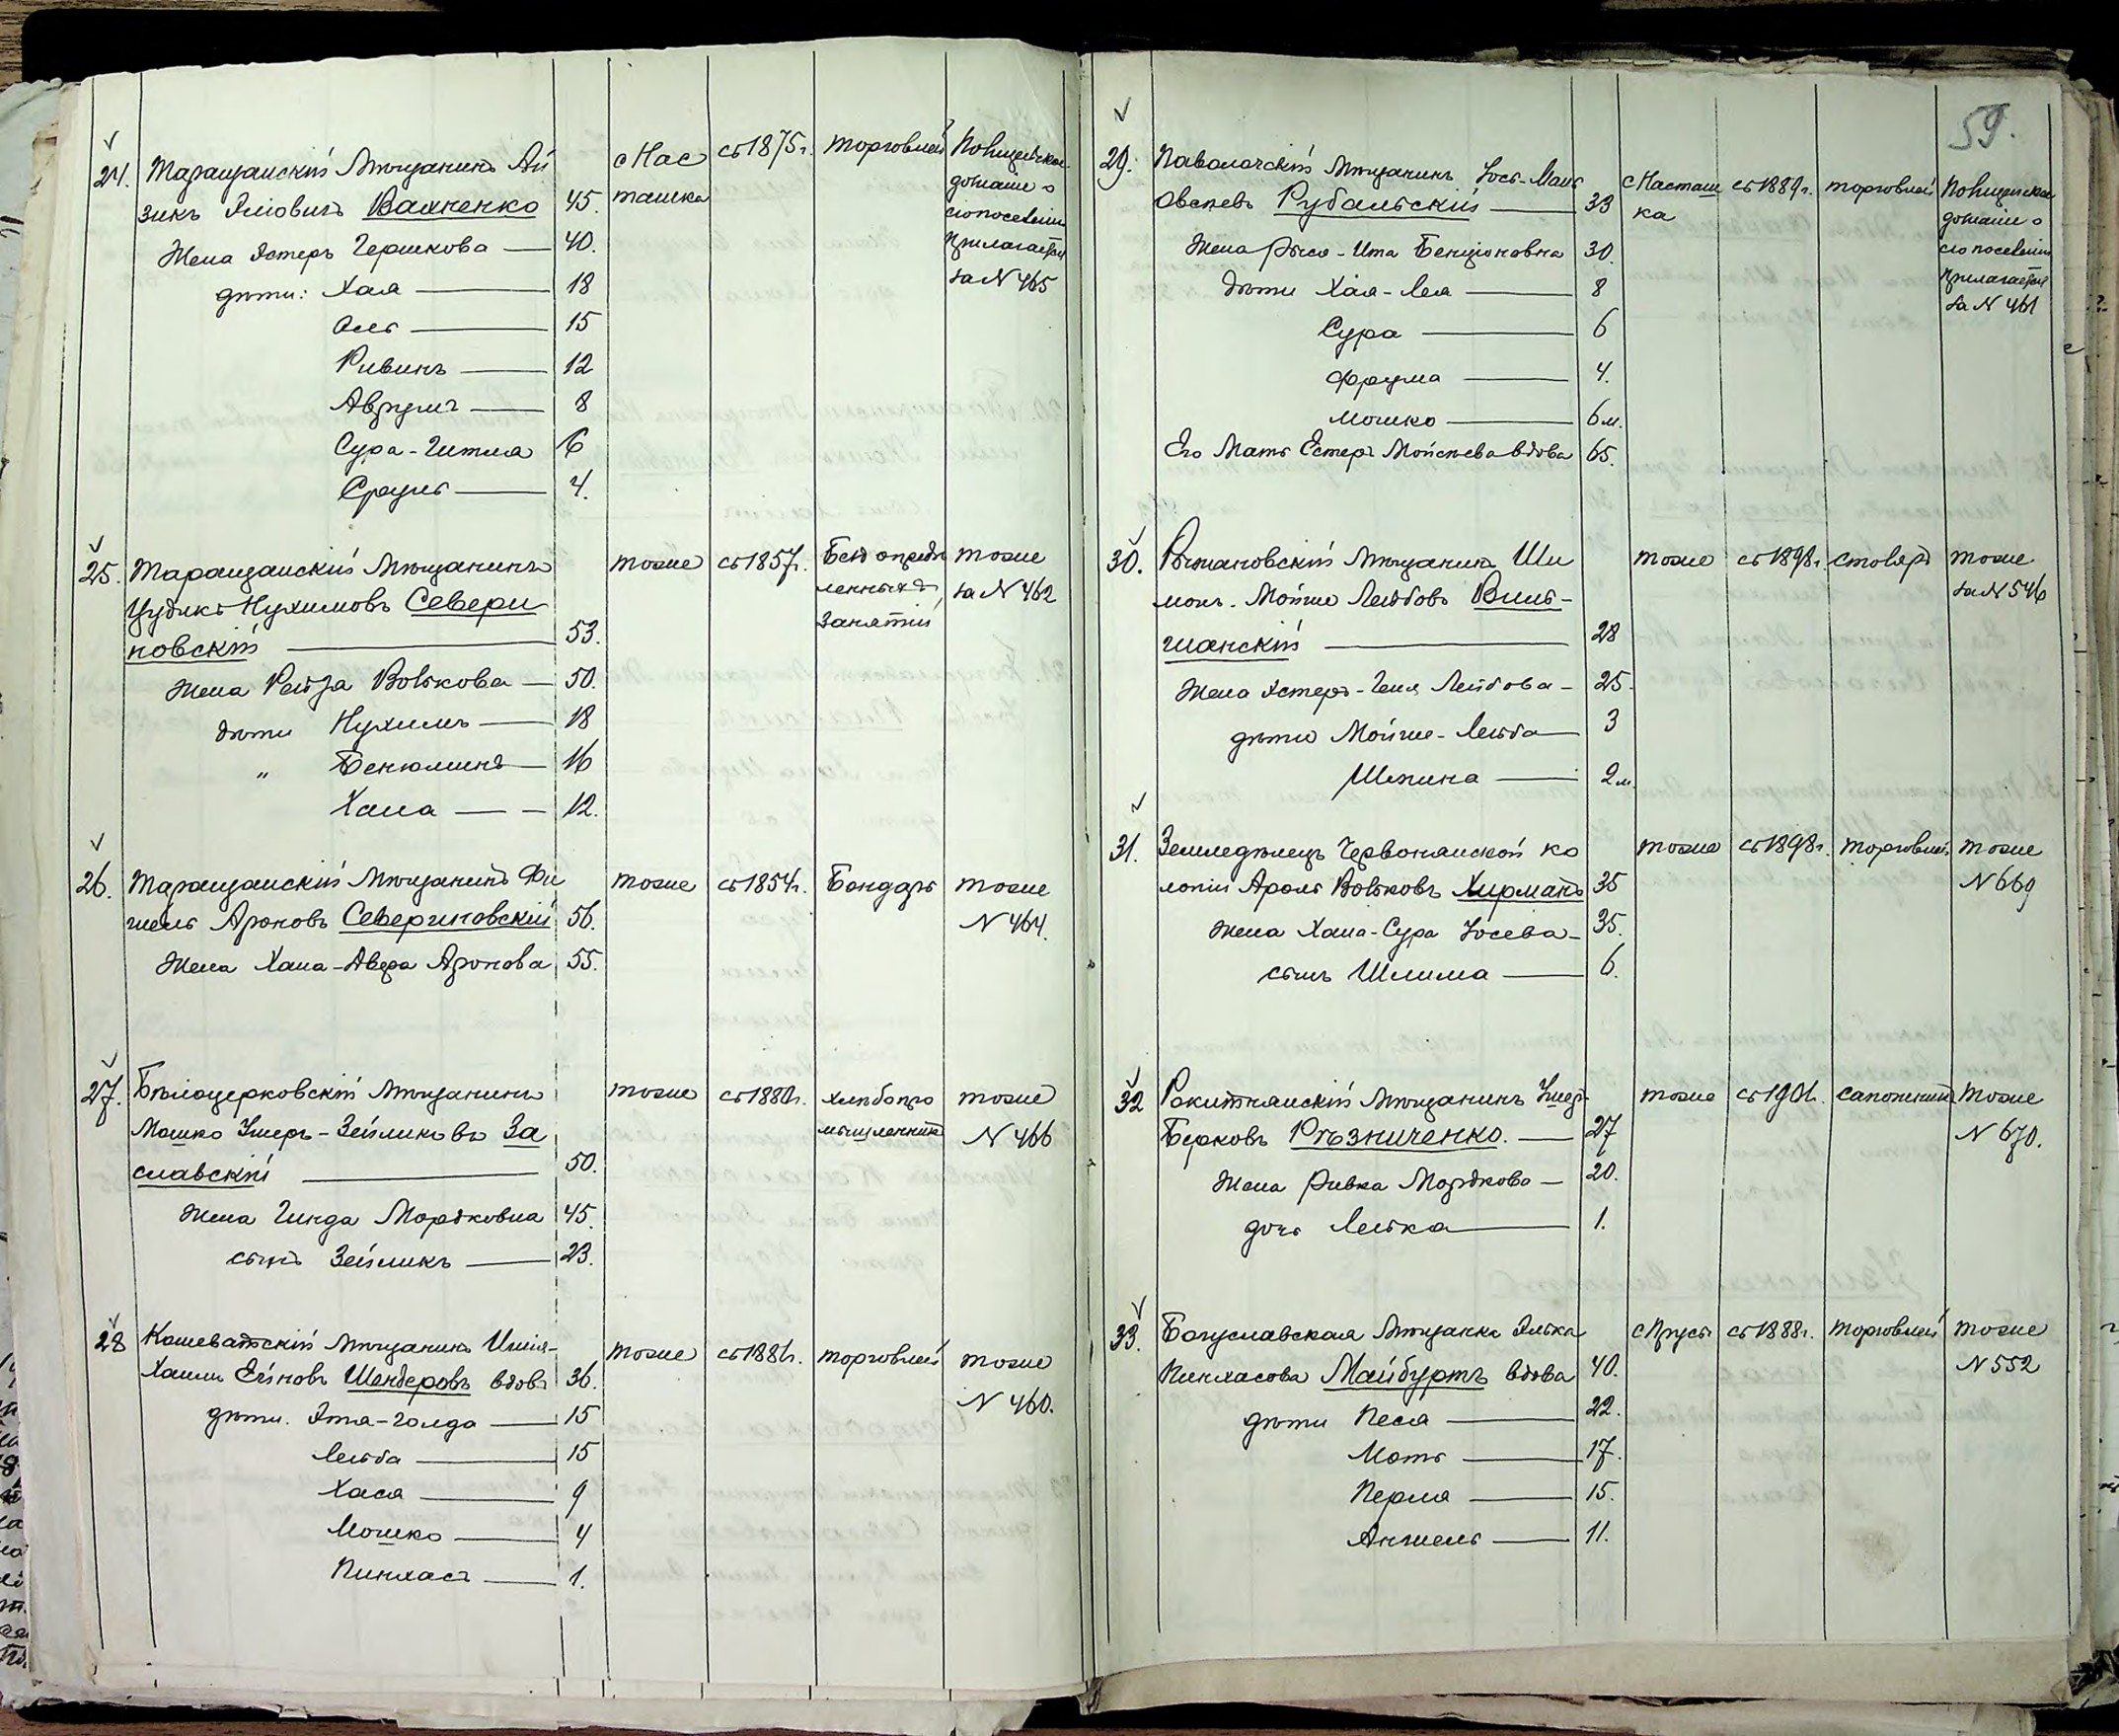 24. Таращанскій Мѣщанинъ Ай
зикъ Яковичъ Вахненко 45. с Нас
ташка съ 1875 г. торговлей Полицейское
дознаніе о
его поселеніи
прилагается
за N 465
Жена Эстеръ Гершкова — 40.
дѣти: Хая — 18
15
Ривинъ — 12
Аврумъ — 8
Сура-Гитля 6
Сруль — 4.
25. Таращанскій Мѣщанинъ
Цудикъ Нухимовъ Севери
новскій — 53. тоже съ 1857 г. Безъ опредѣ
ленныхъ
занятій тоже
за N 462
Жена Рейза Волькова — 50.
дѣти Нухимъ — 18
„ Бенюминъ — 16
Хана — 12.
26. Таращанскій Мѣщанинъ Фи
шель Ароновъ Севериновскій 56. тоже съ 1854 г. Бондарь тоже
N 464.
Жена Хана-Двера Аронова 55.
27. Бѣлоцерковскій Мѣщанинъ
Мошко Ушеръ-Зейликовъ За
славскій — 50. тоже съ 1880 г. хлѣбопро
мышленникъ тоже
N 466
Жена Гинда Мордковна 45.
сынъ Зейликъ — 23.
28 Кошеватскій Мѣщанинъ
Хаимъ Ейновъ Шендеровъ вдовъ 36. тоже съ 1881 г. торговлей тоже
N 460.
дѣти. Эта-Голда — 15
Лейба — 15
Хася — 9
Мошко — 4
Пинхасъ — 1.
59.
29. Паволочскій Мѣщанинъ Іось-Мань
Овсеевъ Рубальскій — 33 с Насташ
ка съ 1889 г. торговлей Полицейское
дознаніе о
его поселеніи
прилагается
за N 461
Жена Рыся-Ита Бенціоновна 30.
дѣти Хая-Лея — 8
Сура — 6
Фрума — 4.
Мошко — 6 м.
Его Мать Естеръ Мойсеева вдова 65.
30. Рыжановскій Мѣщанинъ Ши
монъ. Мойше Лейбовъ Виль-
шанскій — 28 тоже съ 1898 г. столяръ тоже
за N 546
Жена Эстеръ-Геня Лейбова — 25.
дѣти Мойше-Лейба — 3
Шепина — 2 м.
31. Земледѣлецъ Червонянской ко
лоніи Аронъ Вольковъ Хирманъ 35 тоже съ 1898 г. торговлей тоже
N 669
Жена Хана-Сура Іосева — 35.
сынъ Шлима — 6.
32 Рокитнянскій Мѣщанинъ Ушеръ
Берковъ Рѣзниченко. — 27 тоже съ 1901 г. сапожникъ тоже
N 670.
Жена Ривка Мордкова — 20.
дочь Лейка — 1.
33. Богуславская Мѣщанка Элька
Пинхасова Майбуртъ вдова 40. с Прусы съ 1888 г. торговлей тоже
N 552
дѣти Песя — 22.
Моть — 17.
Перля — 15.
Аншель — 11.